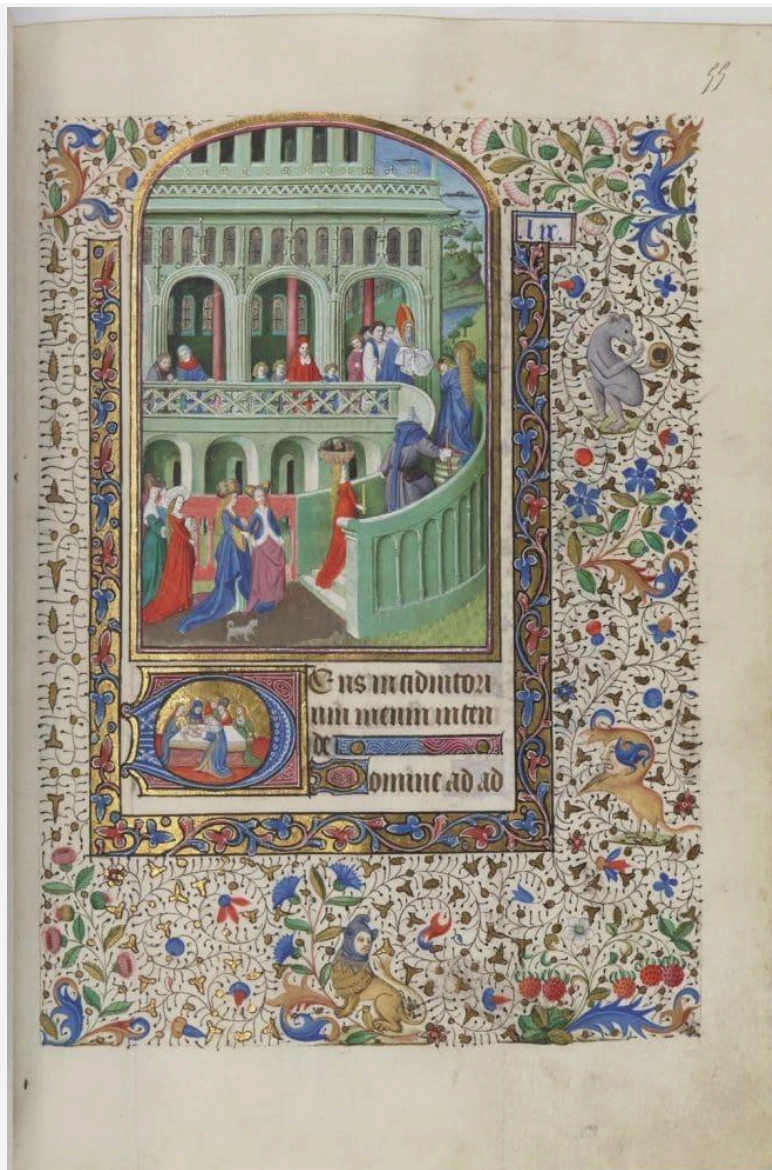 55
Deus in adiutori
um meum inten
de
Domine ad ad